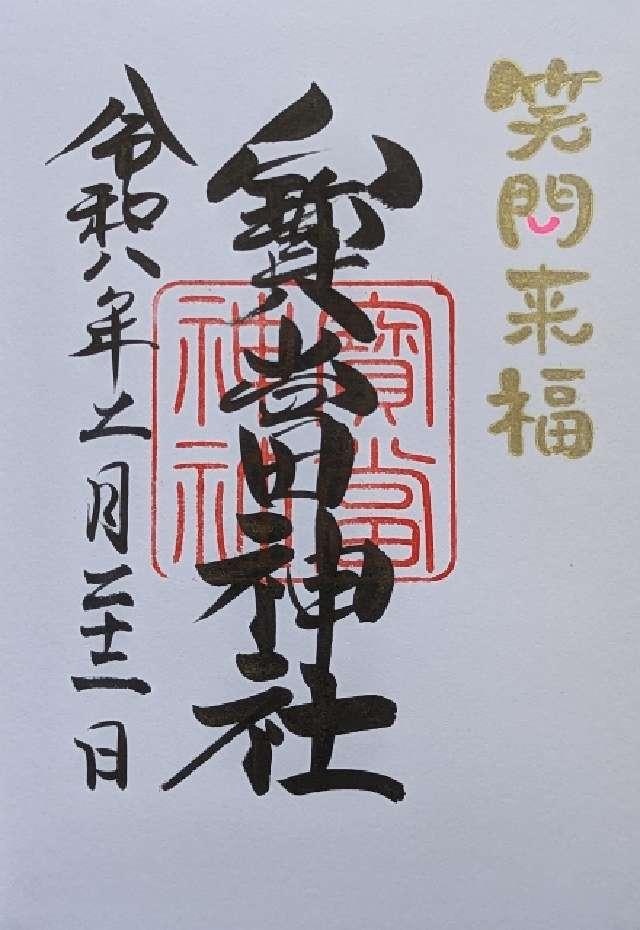 笑門来福
寳當神社
寳當神社
令和八年二月二十二日